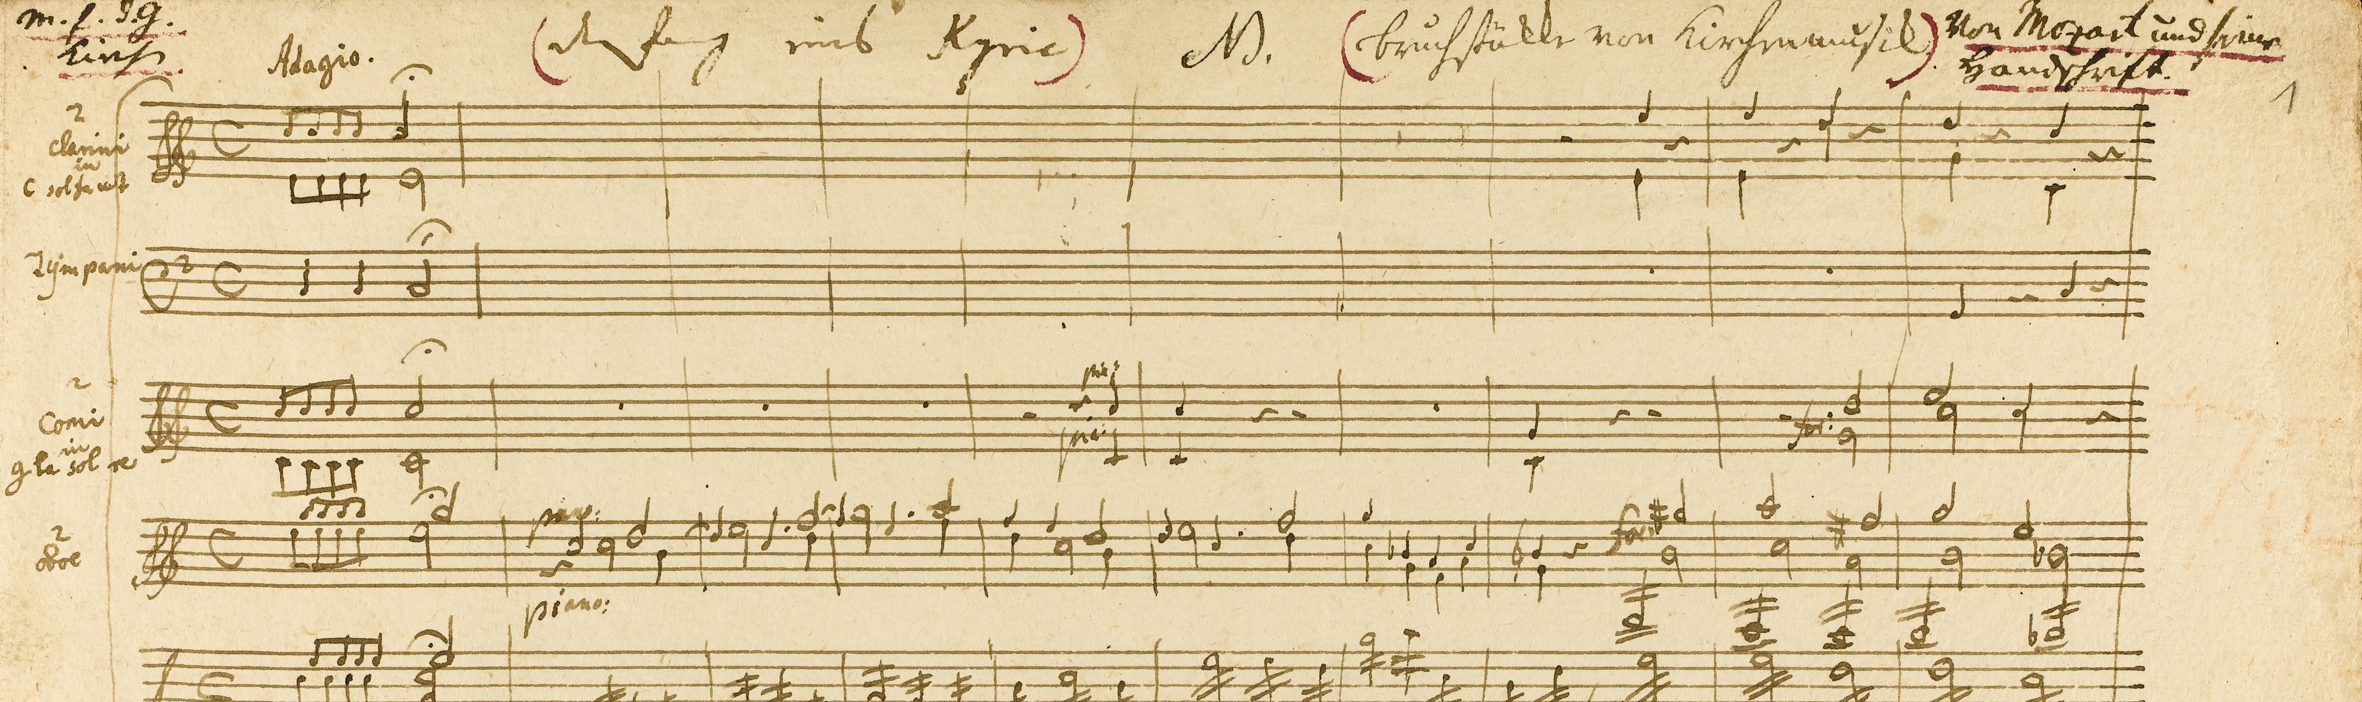 Adagio.
(Anfang eines Kyrie) NB. (Bruchstücke von Kirchenmusik) Von Mozart und seine
Handschrift.
1
2
Clarini
in
C sol fa ut
Tÿmpani
2
Corni
in
g la sol re
pia:
pia:
for:
2
oboe
piano:
piano:
for: